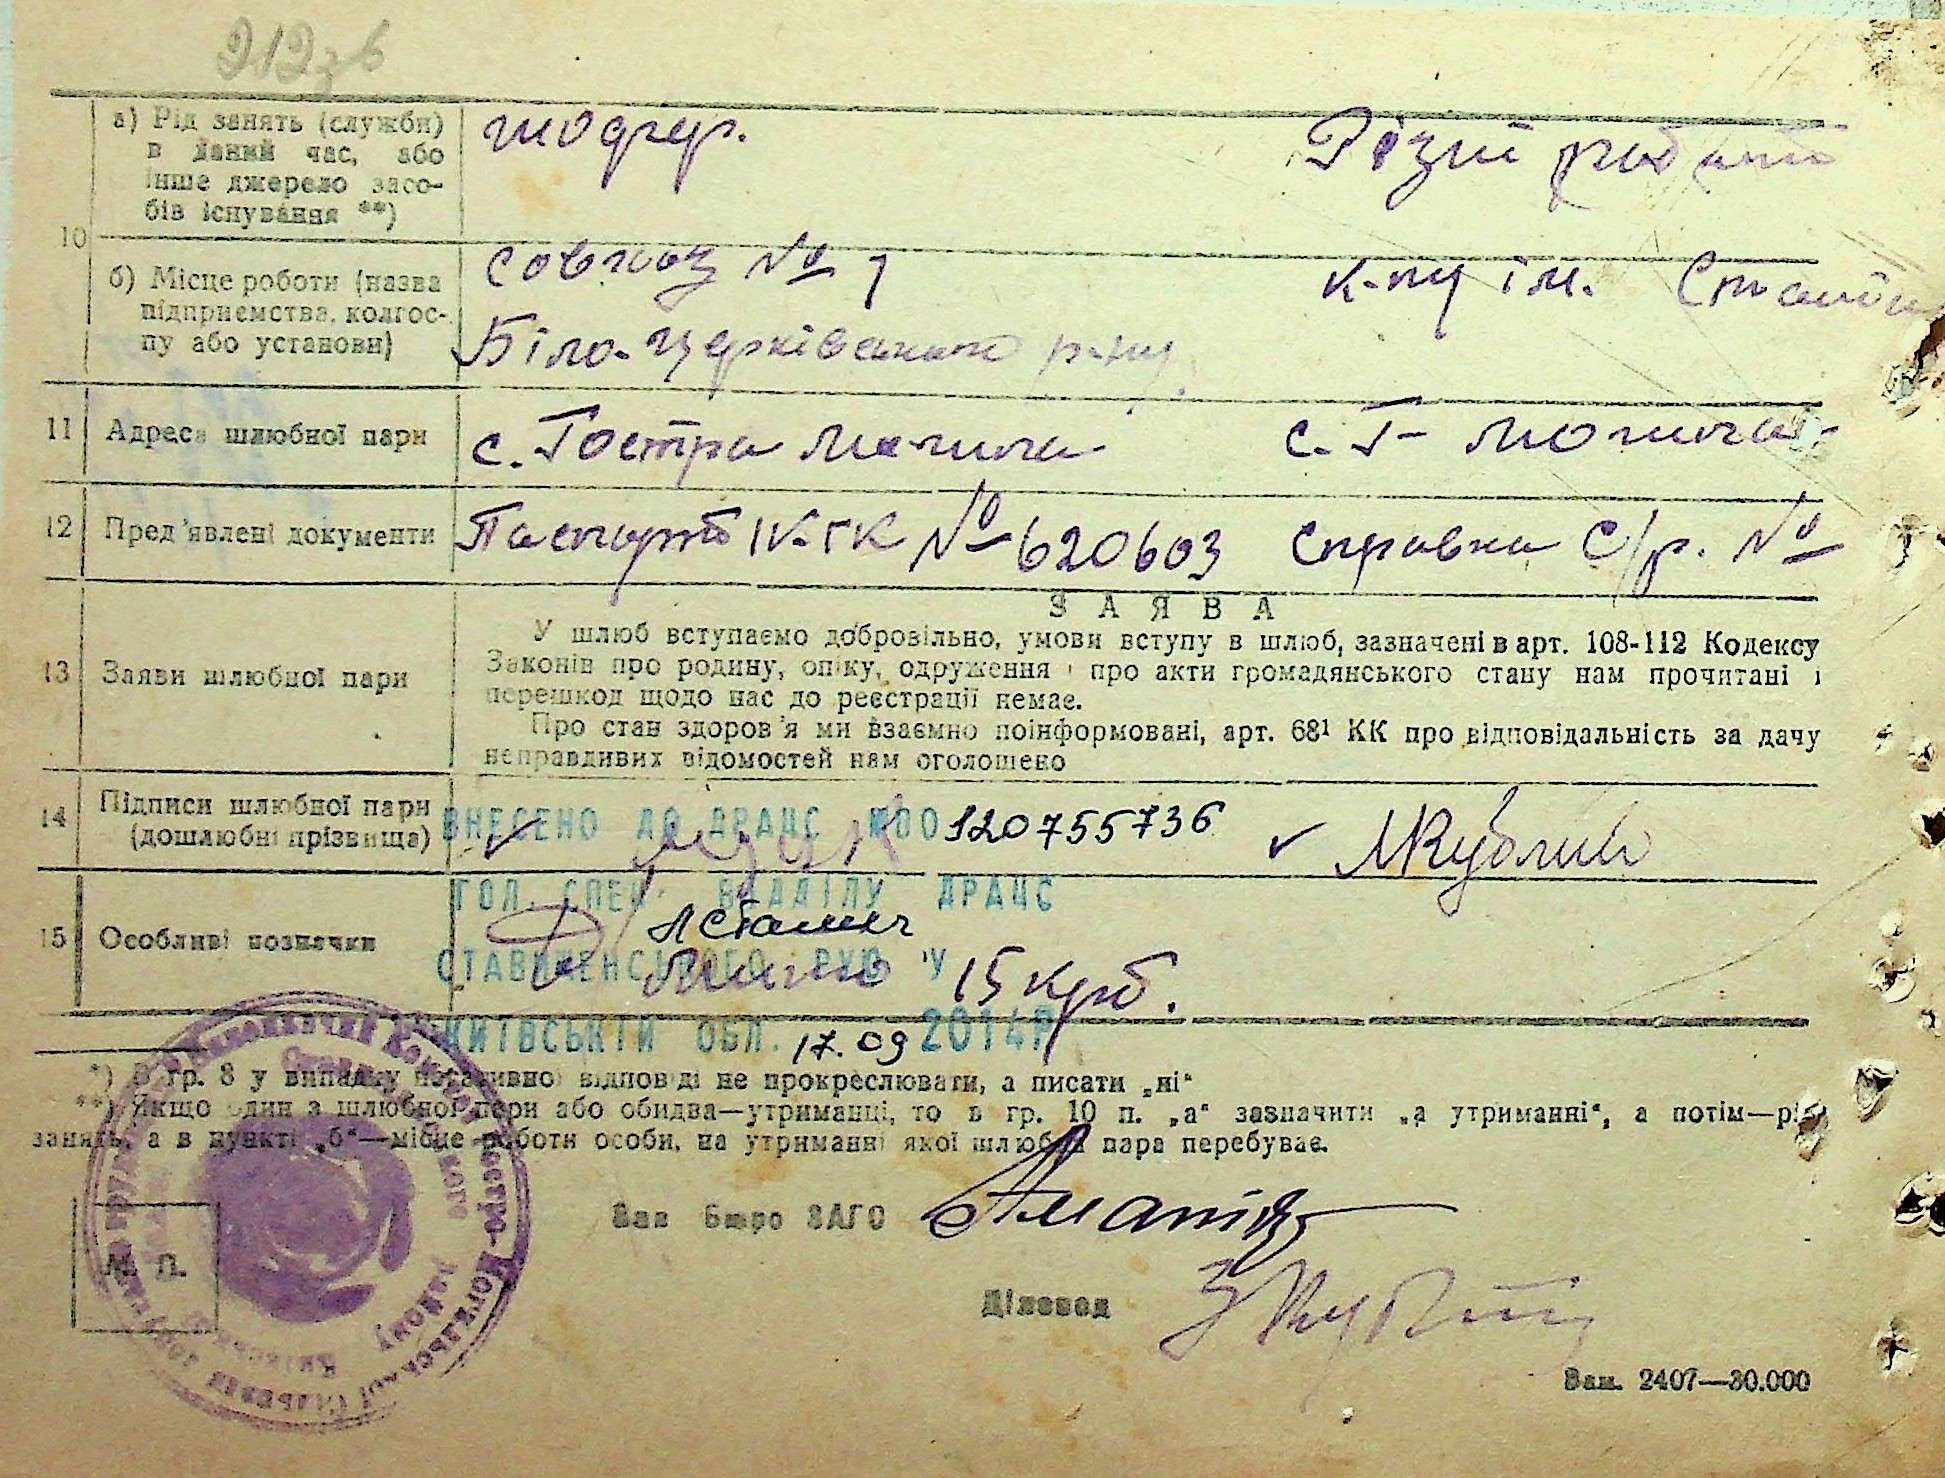 212зв
а) Рід занять (служби)
в даний час, або
інше джерело засо-
бів існування **)
шофер.
Різни роботи
10
б) Місце роботи (назва
підприємства, колгос-
пу або установи)
Совхоз № 1
Біло-Церківського р-ну
к-пу ім.
11 Адреса шлюбної пари
с. Гостра Могила
с. Г- Могила
12 Пред'явлені документи
Паспорт IV-ГК № 620603
Справка С/р. №
ЗАЯВА
13 Заяви шлюбної пари
У шлюб вступаємо добровільно, умови вступу в шлюб, зазначені в арт. 108-112 Кодексу
Законів про родину, опіку, одруження і про акти громадянського стану нам прочитані і
перешкод щодо нас до реєстрації немає.
Про стан здоров'я ми взаємно поінформовані, арт. 68¹ КК про відповідальність за дачу
неправдивих відомостей нам оголошено
14 Підписи шлюбної пари
(дошлюбні прізвища)
ВНЕСЕНО ДО ДРАЦС №00120755736
ГОЛ. СПЕЦ. ВІДДІЛУ ДРАЦС
15 Особливі позначки
СТАВИЩЕНСЬКОГО РУЮ У
15 крб.
КИЇВСЬКІЙ ОБЛ. 17.09 2014Р
*) В гр. 8 у випадку негативної відповіді не прокреслювати, а писати „ні“
**) Якщо один з шлюбної пари або обидва—утриманці, то в гр. 10 п. „а“ зазначити „а утриманні“, а потім—рід
занять, а в пункті „б“—місце роботи особи, на утриманні якої шлюбна пара перебуває.
Зав бюро ЗАГС
М. П.
Діловод
Зам. 2407—30.000